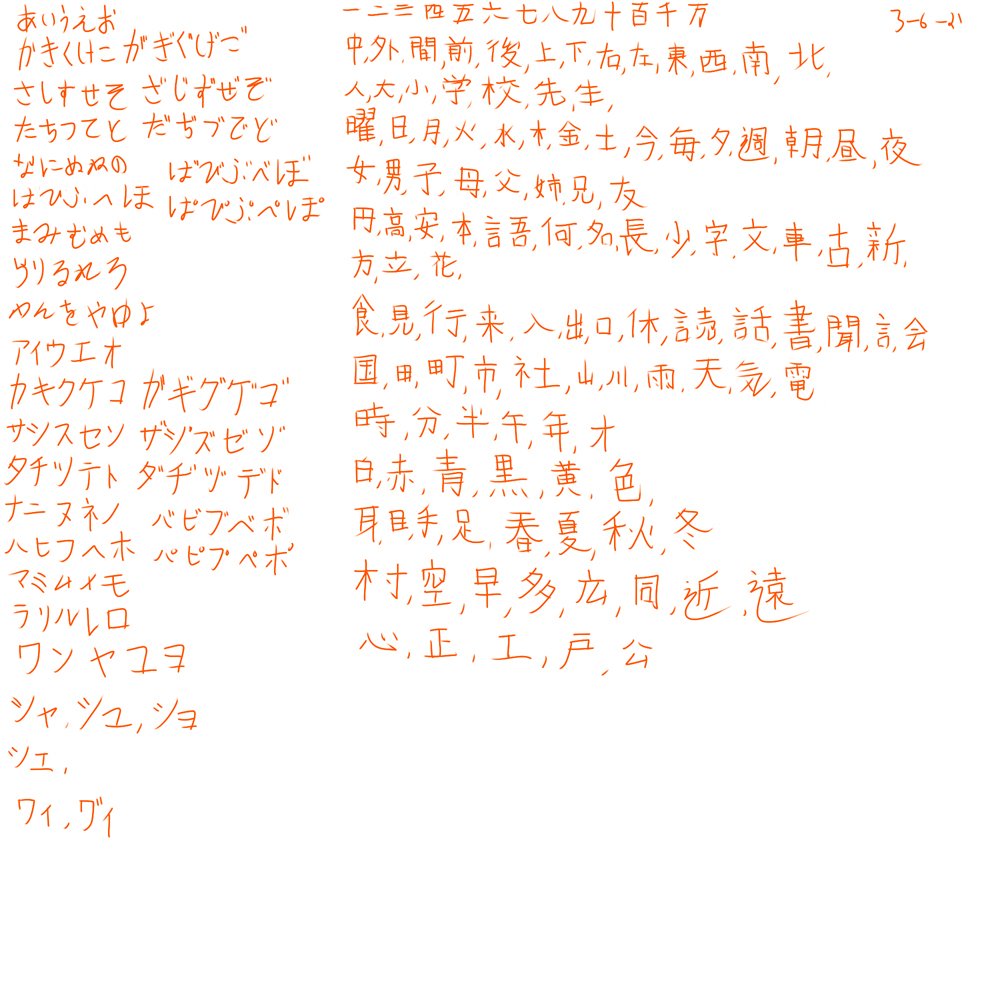 あいうえお
かきくけこ がぎぐげご
さしすせそ ざじずぜぞ
たちつてと だぢづでど
なにぬねの ばびぶべぼ
はひふへほ ぱぴぷぺぽ
まみむめも
らりるれろ
わんをやゆよ
アイウエオ
カキクケコ ガギグゲゴ
サシスセソ ザジズゼゾ
タチツテト ダヂヅデド
ナニヌネノ バビブベボ
ハヒフヘホ パピプペポ
マミムメモ
ラリルレロ
ワンヤユヲ
シャ,シュ,ショ
シェ,
ウィ,ヴィ
一二三四五六七八九十百千万
中,外,間,前,後,上,下,右,左,東,西,南,北,
人,大,小,学,校,先,生,
曜,日,月,火,水,木,金,土,今,毎,夕,週,朝,昼,夜
女,男,子,母,父,姉,兄,友
円,高,安,本,語,何,名,長,少,字,文,車,古,新,
方,立,花,
食,見,行,来,入,出,口,休,読,話,書,聞,言,会
国,田,町,市,社,山,川,雨,天,気,電
時,分,半,午,年,才
白,赤,青,黒,黄,色,
耳,目,手,足,春,夏,秋,冬
村,空,早,多,広,同,近,遠
心,正,工,戸,公
3-6-21